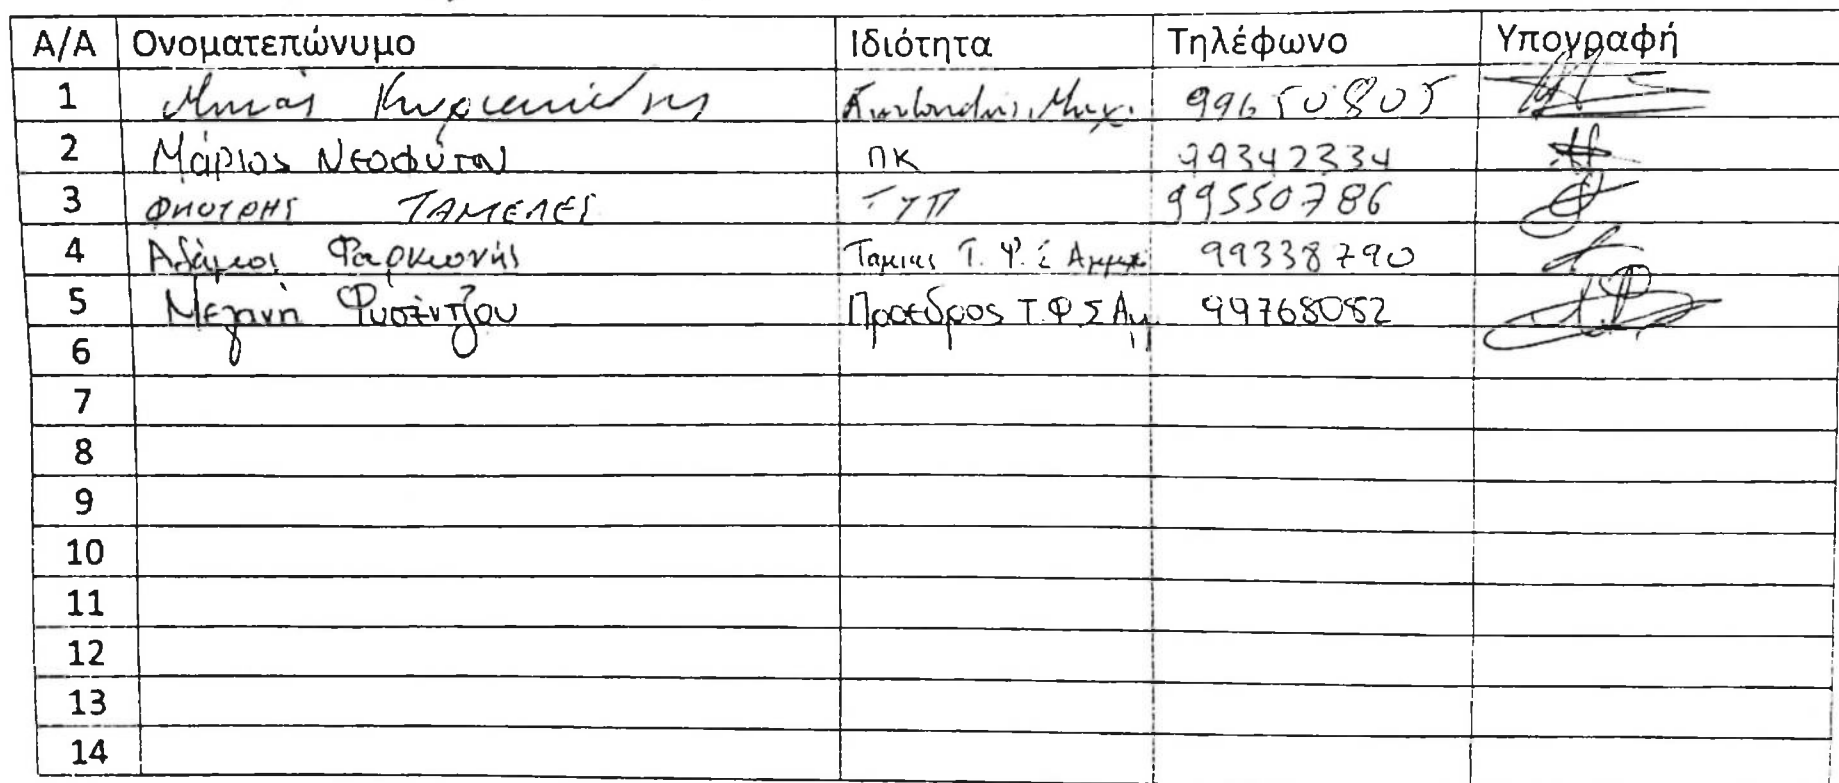 Α/Α Ονοματεπώνυμο Ιδιότητα Τηλέφωνο Υπογραφή
1 Μηνάς Κυριακίδης 99650805
2 Μάριος Νεοφύτου ΠΚ 99342334
3 ΤΑΜΕΛΕΣ 99550786
4 Αδάμος Ταμίας Τ. Φ. Σ Αμμχ 99338790
5 Μελανή Φυσέντζου Πρόεδρος Τ.Φ.Σ Αμ 99768082
6
7
8
9
10
11
12
13
14